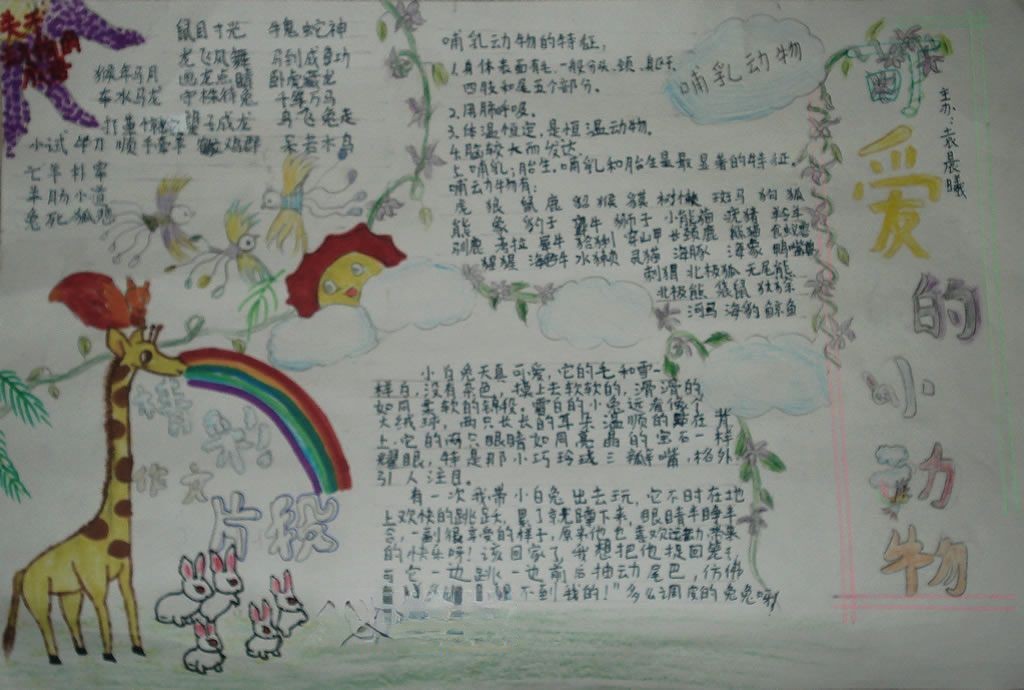 可爱的小动物
主办:袁晨曦
鼠目寸光 牛鬼蛇神
龙飞凤舞 马到成功
猴年马月 画龙点睛 卧虎藏龙
车水马龙 守株待兔 千军万马
打草惊蛇 望子成龙 乌飞兔走
小试牛刀 顺手牵羊 鸡群 呆若木鸟
亡羊补牢
羊肠小道
兔死狐悲
哺乳动物
哺乳动物的特征,
1.身体表面有毛,一般分头、颈、躯干、
四肢和尾五个部分。
2.用肺呼吸。
3.体温恒定,是恒温动物。
4.脑较大而发达
5.哺乳;胎生。哺乳和胎生是最显著的特征。
哺动物有:
虎 狼 鼠 鹿 貂 猴 貘 树懒 斑马 狗 狐
熊 象 豹子 麝牛 狮子 小熊猫 疣猪 羚羊
驯鹿 考拉 犀牛 猞猁 穿山甲 长颈鹿 熊猫 食蚁兽
猩猩 海牛 水獭 灵猫 海豚 海象 鸭嘴兽
刺猬 北极狐 无尾熊
北极熊 袋鼠
河马 海豹 鲸鱼
精彩
作文
片段
小白兔天真可爱,它的毛和雪一
样白,没有杂色,摸上去软软的,滑滑的
如同柔软的锦段。雪白的小兔远看像个
大绒球,两只长长的耳朵温顺的贴在背
上,它的两只眼睛如同亮晶的宝石一样
耀眼,特是那小巧玲珑三瓣嘴,格外
引人注目。
有一次我带小白兔出去玩,它不时在地
上欢快的跳跃,累了就蹲下来,眼睛半睁半
合,一副很享受的样子,原来他也喜欢运动带来
的快乐呀!该回家了,我想把他捉回笼子,
可它一边跳一边前后抽动尾巴,仿佛
不到我的!"多么调皮的兔兔啊!